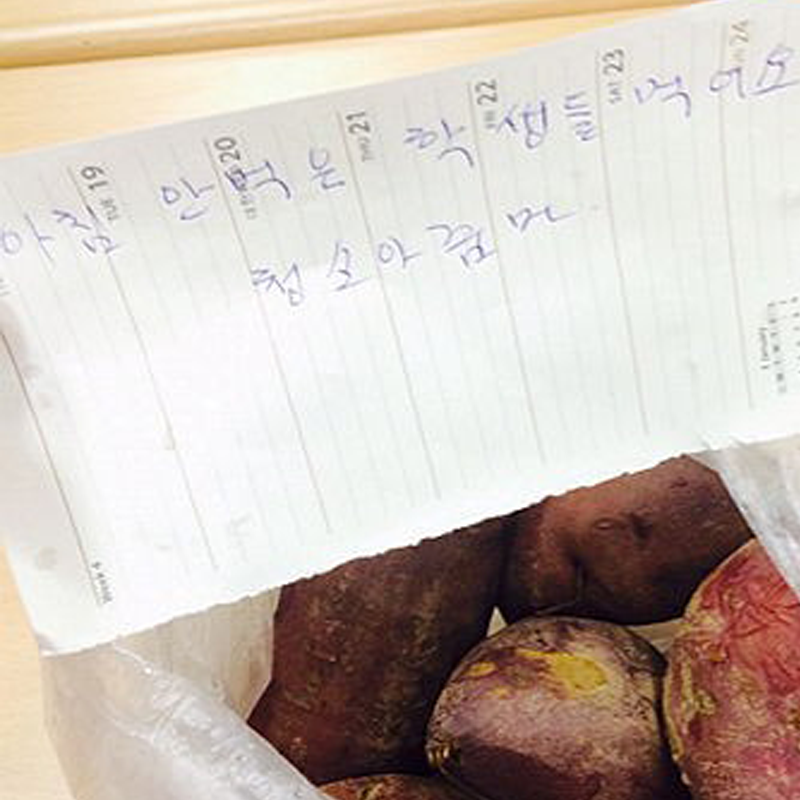 아침 안먹은 학생들 먹어요
청소아줌마
TUE 19
20
THU 21
FRI 22
SAT 23
24
January